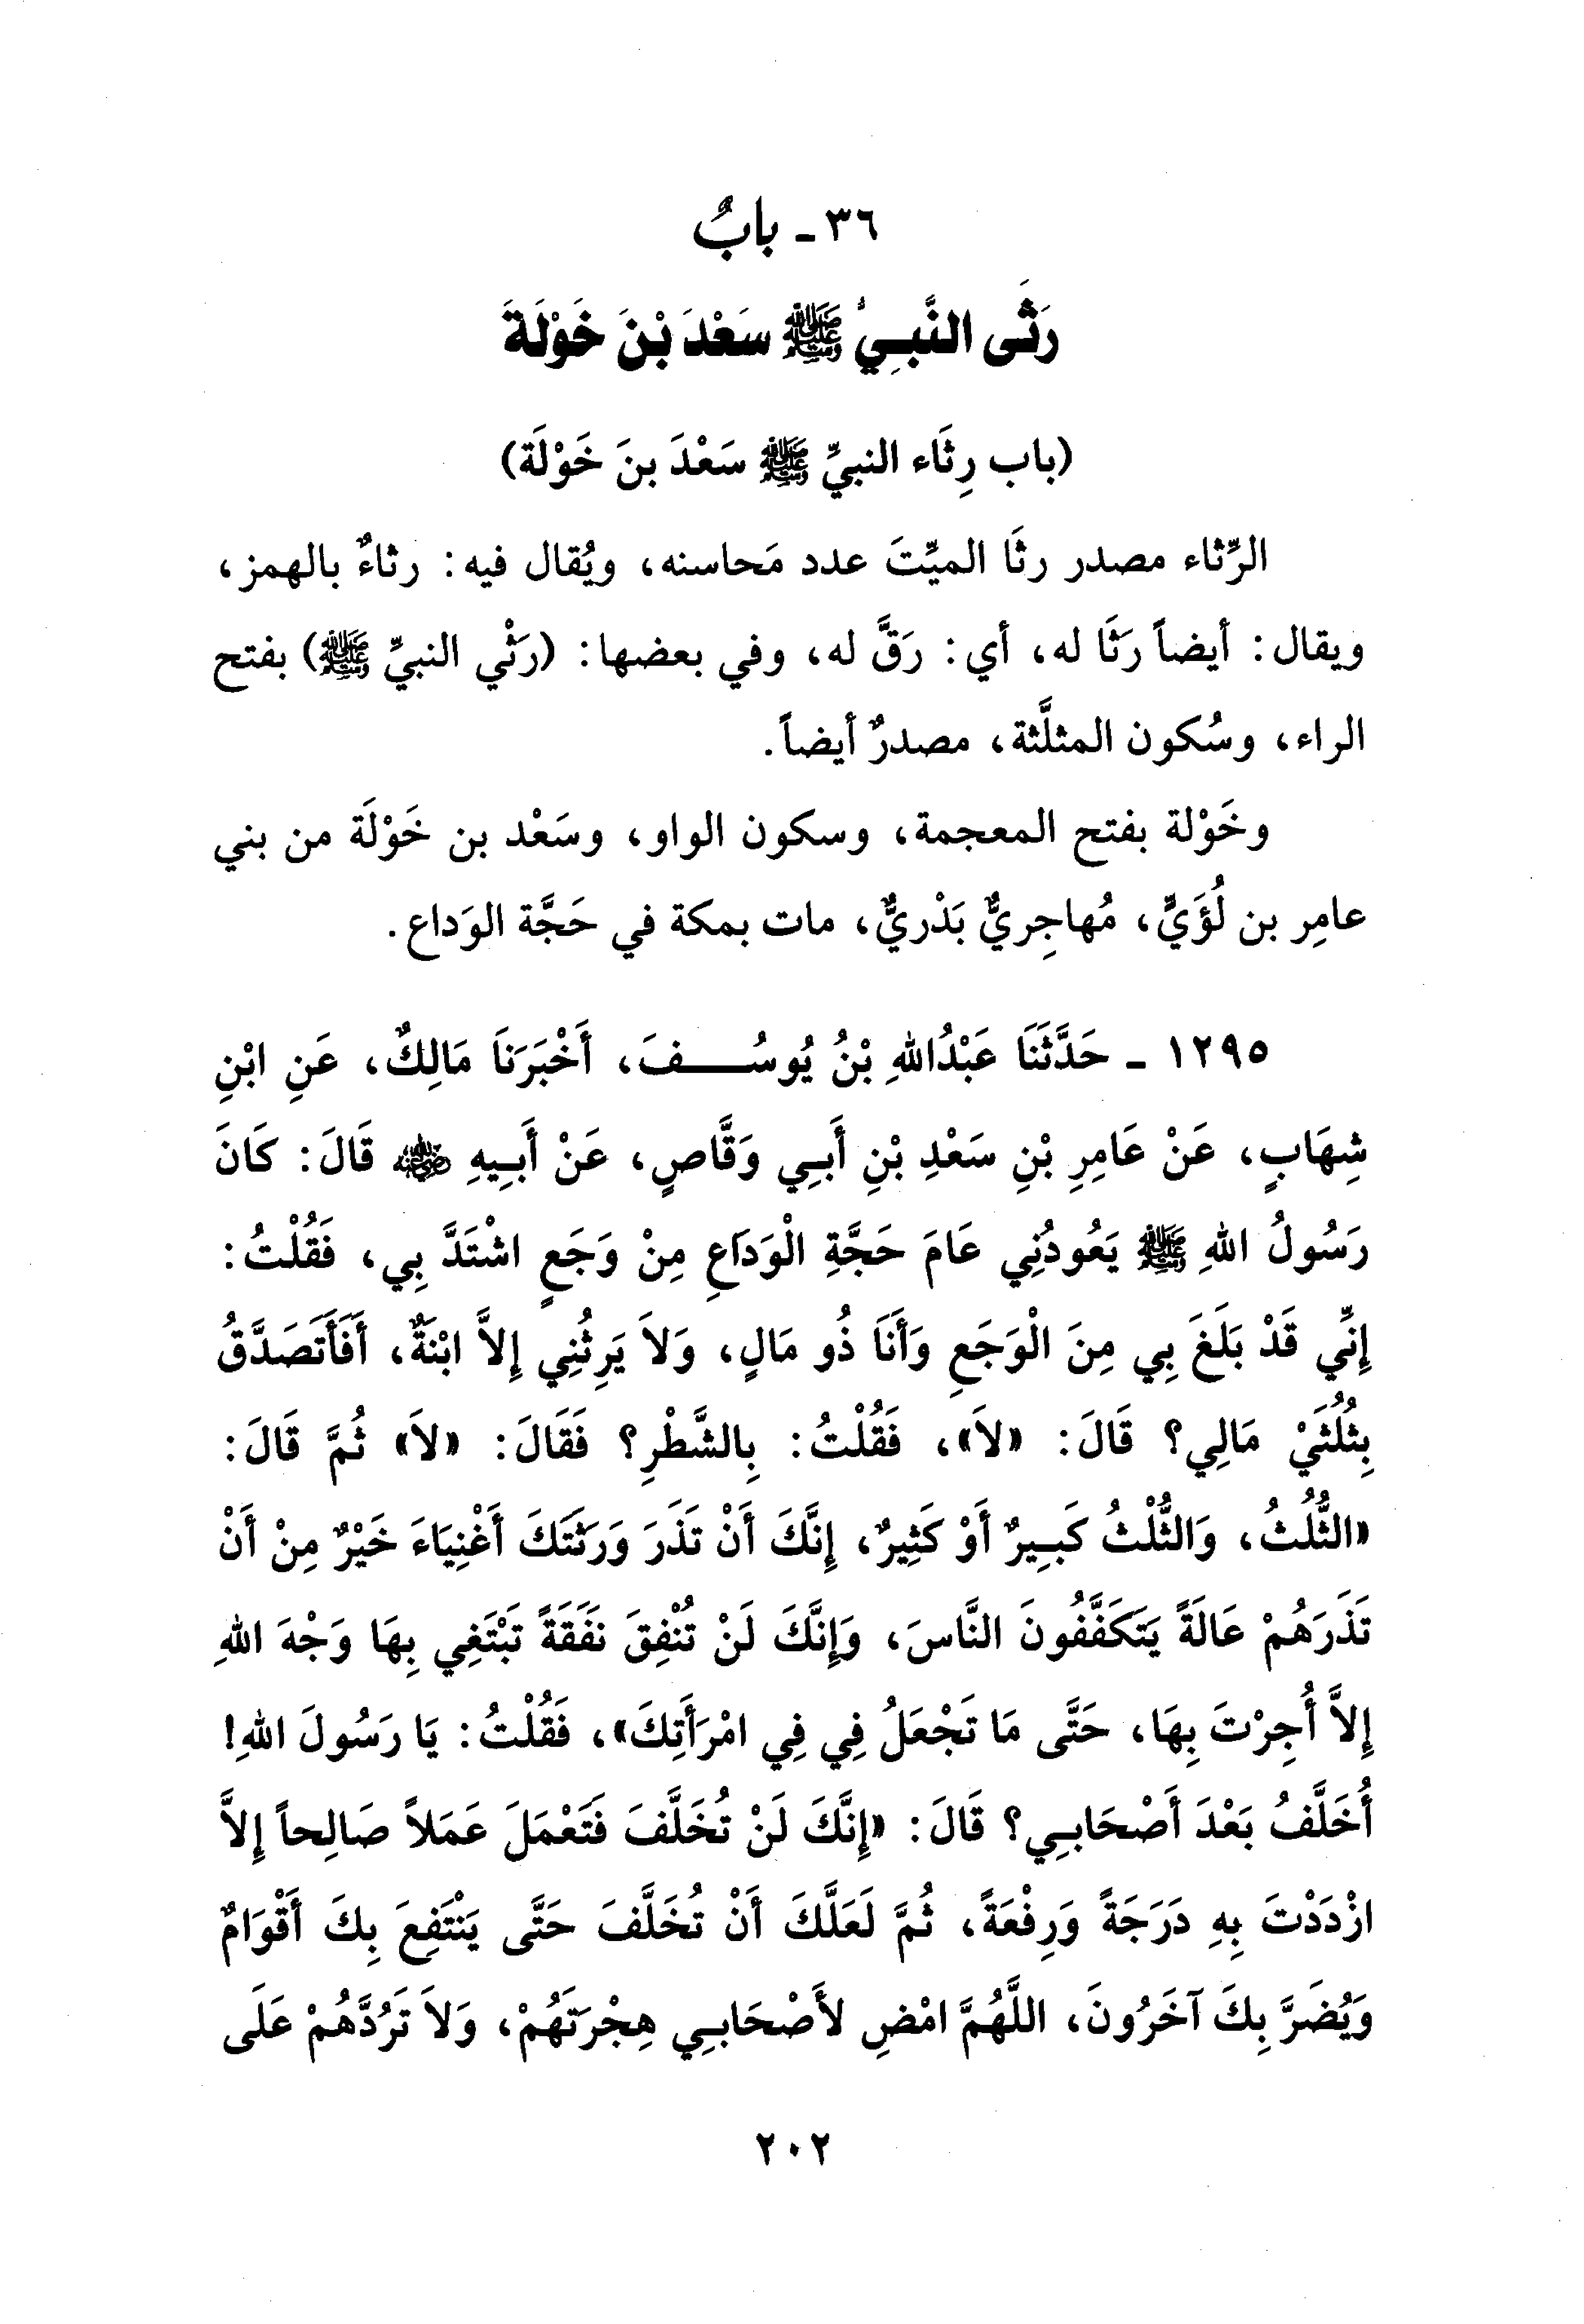 ٣٦ - بابٌ
رَثَى النَّبِيُّ ﷺ سَعْدَ بْنَ خَوْلَةَ
(باب رِثَاء النبيِّ ﷺ سَعْدَ بنَ خَوْلَة)
الرِّثاء مصدر رثَا الميِّتَ عدد مَحاسنه، ويُقال فيه: رثاءٌ بالهمز،
ويقال: أيضاً رَثَا له، أي: رَقَّ له، وفي بعضها: (رَثْي النبيِّ ﷺ) بفتح
الراء، وسُكون المثلَّثة، مصدرٌ أيضاً.
وخَوْلة بفتح المعجمة، وسكون الواو، وسَعْد بن خَوْلَة من بني
عامِر بن لُؤَيٍّ، مُهاجِريٌّ بَدْريٌّ، مات بمكة في حَجَّة الوَداع.
١٢٩٥ - حَدَّثَنَا عَبْدُاللهِ بْنُ يُوسُـــفَ، أَخْبَرَنَا مَالِكٌ، عَنِ ابْنِ
شِهَابٍ، عَنْ عَامِرِ بْنِ سَعْدِ بْنِ أَبِي وَقَّاصٍ، عَنْ أَبِيهِ رضي الله عنه قَالَ: كَانَ
رَسُولُ اللهِ ﷺ يَعُودُنِي عَامَ حَجَّةِ الْوَدَاعِ مِنْ وَجَعٍ اشْتَدَّ بِي، فَقُلْتُ:
إِنِّي قَدْ بَلَغَ بِي مِنَ الْوَجَعِ وَأَنَا ذُو مَالٍ، وَلاَ يَرِثُنِي إِلاَّ ابْنَةٌ، أَفَأَتَصَدَّقُ
بِثُلُثَيْ مَالِي؟ قَالَ: «لاَ»، فَقُلْتُ: بِالشَّطْرِ؟ فَقَالَ: «لاَ» ثُمَّ قَالَ:
«الثُّلُثُ، وَالثُّلْثُ كَبِيرٌ أَوْ كَثِيرٌ، إِنَّكَ أَنْ تَذَرَ وَرَثَتَكَ أَغْنِيَاءَ خَيْرٌ مِنْ أَنْ
تَذَرَهُمْ عَالَةً يَتَكَفَّفُونَ النَّاسَ، وَإِنَّكَ لَنْ تُنْفِقَ نَفَقَةً تَبْتَغِي بِهَا وَجْهَ اللهِ
إِلاَّ أُجِرْتَ بِهَا، حَتَّى مَا تَجْعَلُ فِي فِي امْرَأَتِكَ»، فَقُلْتُ: يَا رَسُولَ اللهِ!
أُخَلَّفُ بَعْدَ أَصْحَابِي؟ قَالَ: «إِنَّكَ لَنْ تُخَلَّفَ فَتَعْمَلَ عَمَلاً صَالِحاً إِلاَّ
ازْدَدْتَ بِهِ دَرَجَةً وَرِفْعَةً، ثُمَّ لَعَلَّكَ أَنْ تُخَلَّفَ حَتَّى يَنْتَفِعَ بِكَ أَقْوَامٌ
وَيُضَرَّ بِكَ آخَرُونَ، اللَّهُمَّ امْضِ لأَصْحَابِي هِجْرَتَهُمْ، وَلاَ تَرُدَّهُمْ عَلَى
٢٠٢